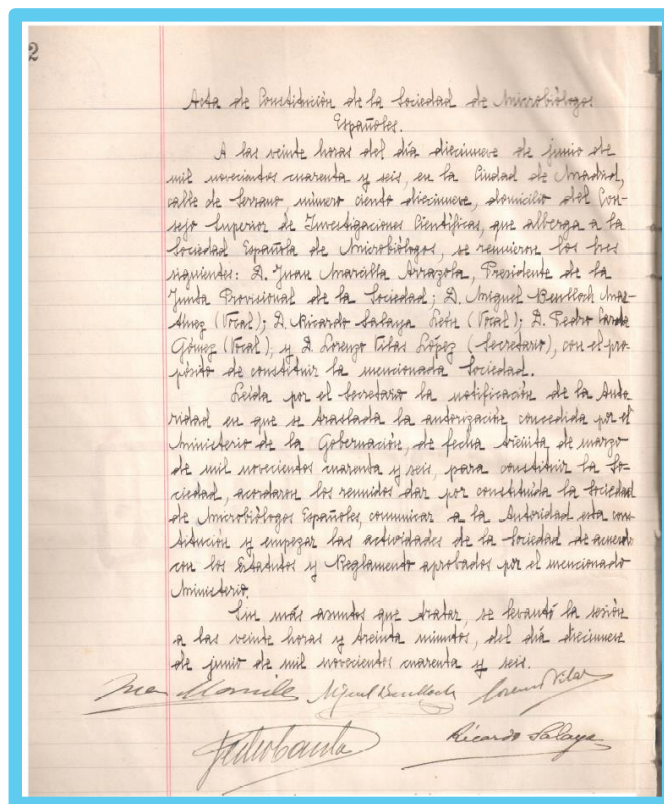 2
Acta de Constitución de la Sociedad de Microbiólogos
Españoles.
A las veinte horas del día diecinueve de junio de
mil novecientos cuarenta y seis, en la Ciudad de Madrid,
calle de Serrano, número ciento diecinueve, domicilio del Con-
sejo Superior de Investigaciones Científicas, que alberga a la
Sociedad Española de Microbiólogos, se reunieron los Sres
siguientes: D. Juan Marcilla Arrazola, Presidente de la
Junta Provisional de la Sociedad; D. Miguel Benlloch Mar-
tínez (Vocal); D. Ricardo Salaya León (Vocal); D. Pedro
Gómez (Vocal), y D. Lorenzo Vilas López (Secretario), con el pro-
pósito de constituir la mencionada Sociedad.
Leída por el Secretario la notificación de la Auto-
ridad en que se traslada la autorización concedida por el
Ministerio de la Gobernación, de fecha treinta de marzo
de mil novecientos cuarenta y seis, para constituir la So-
ciedad, acordaron los reunidos dar por constituída la Sociedad
de Microbiólogos Españoles, comunicar a la Autoridad esta cons-
titución y empezar las actividades de la Sociedad de acuerdo
con los Estatutos y Reglamento aprobados por el mencionado
Ministerio.
Sin más asuntos que tratar, se levantó la sesión
a las veinte horas y treinta minutos, del día diecinueve
de junio de mil novecientos cuarenta y seis.
Juan Marcilla Miguel Benlloch Lorenzo Vilas
Ricardo Salaya